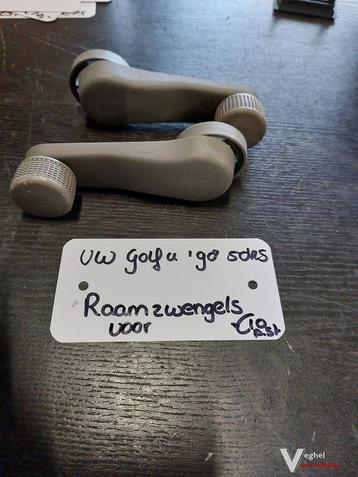 VW Golf 4 '98 5drs
Raamzwengels
voor
€10
p.st
Veghel